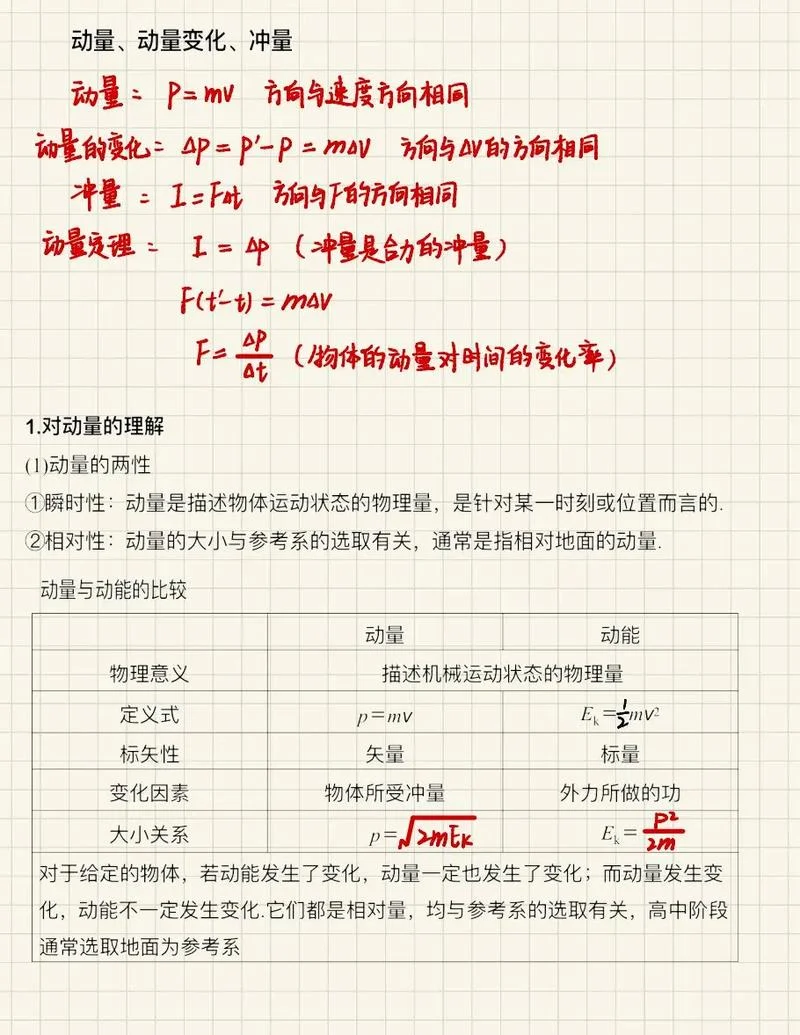 动量、动量变化、冲量
动量： P=mv 方向与速度方向相同
动量的变化： Δp=p′-p=mΔv 方向与Δv的方向相同
冲量： I=FΔt 方向与F的方向相同
动量定理： I=Δp （冲量是合力的冲量）
F(t′-t)=mΔv
F=Δp/Δt （物体的动量对时间的变化率）
1.对动量的理解
(1)动量的两性
①瞬时性：动量是描述物体运动状态的物理量，是针对某一时刻或位置而言的.
②相对性：动量的大小与参考系的选取有关，通常是指相对地面的动量.
动量与动能的比较
动量 动能
物理意义 描述机械运动状态的物理量
定义式 p=mv Eₖ=1/2mv²
标矢性 矢量 标量
变化因素 物体所受冲量 外力所做的功
大小关系 p=√2mEₖ Eₖ=P²/2m
对于给定的物体，若动能发生了变化，动量一定也发生了变化；而动量发生变
化，动能不一定发生变化.它们都是相对量，均与参考系的选取有关，高中阶段
通常选取地面为参考系